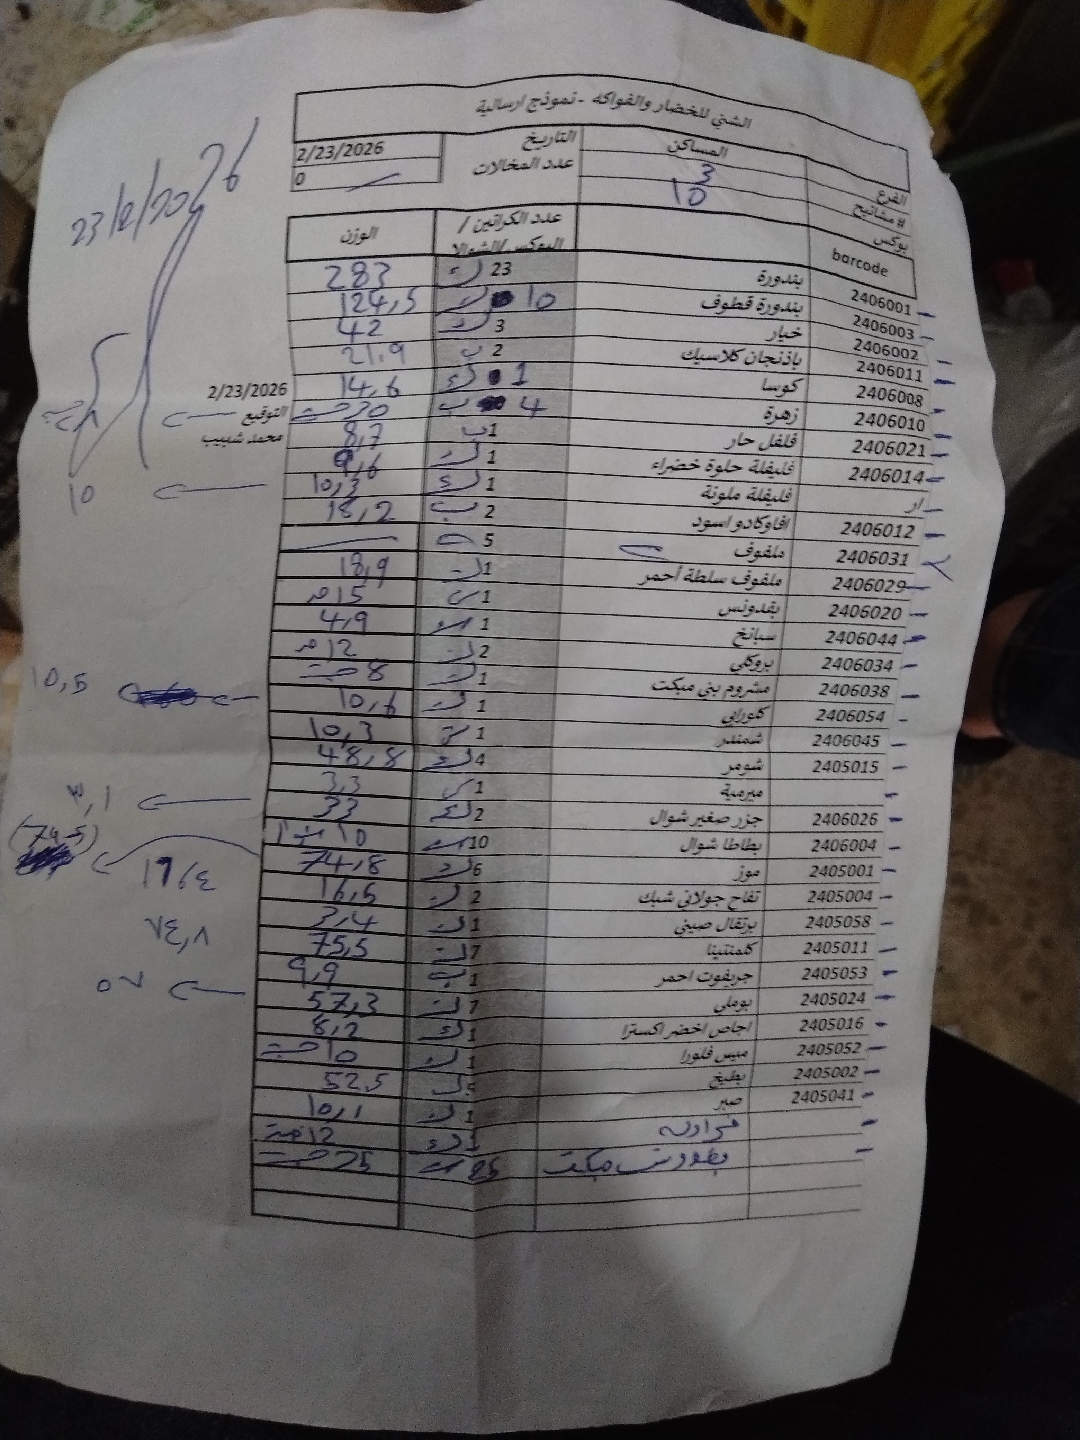 الشني للخضار والفواكه - نموذج ارسالية
الفرع المساكن التاريخ 2/23/2026
# مشاتيح 3 عدد المخالات 0
بوكس 10
barcode عدد الكراتين / البوكس/الشوالا الوزن
23/2/2026
2406001 بندورة 23 283
2406003 بندورة قطوف 10 124,5
2406002 خيار 3 42
2406011 باذنجان كلاسيك 2 ب 21.9
2406008 كوسا 1 14,6
2406010 زهرة 4 ب
2406021 فلفل حار 1 ب 8,7
2406014 فليفلة حلوة خضراء 1 9,6
ار فليفلة ملونة 1 10,3
2406012 افاوكادو اسود 2 ب 18,2
2406031 ملفوف 5
2406029 ملفوف سلطة أحمر 1 18,9
2406020 بقدونس 1 15
2406044 سبانخ 1 4,9
2406034 بروكلي 2 12
2406038 مشروم بني مبكت 1 8
2406054 كلورابي 1 10,6
2406045 شمندر 1 10,3
2405015 شومر 4 48,8
ميرمية 1 3,3
2406026 جزر صغير شوال 2 33
2406004 بطاطا شوال 10 10
2405001 موز 6 74,8
2405004 تفاح جولاني شبك 2 16,5
2405058 برتقال صيني 1 3,4
2405011 كلمنتينا 7 75,5
2405053 جريفوت احمر 1 9,9
2405024 بوملي 7 57,3
2405016 اجاص اخضر اكسترا 1 8,2
2405052 ميس فلورا 1 10
2405002 بطيخ 5 52,5
2405041 صبر 1 10,1
فراولة 1 12
25 25
2/23/2026
التوقيع
محمد شبيب
10
10,5
٣,١
(74-5)